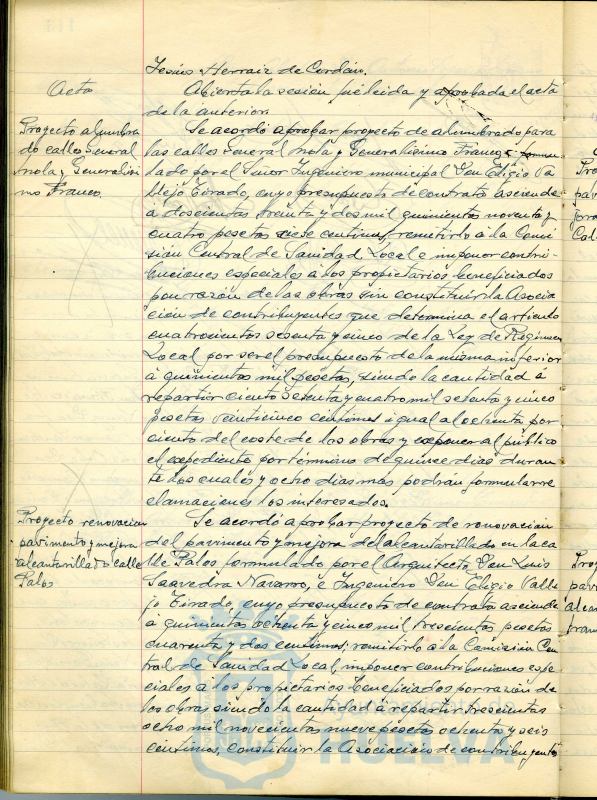 Jesús Herraiz de Cordán.
Acta
Abierta la sesión fué leida y aprobada el acta
de la anterior.
Proyecto alumbra
do calles General
Mola y Generalísi
mo Franco.
Se acordó aprobar proyecto de alumbrado para
las calles General Mola y Generalísimo Franco, formu-
lado por el Señor Ingeniero municipal Don Eligio Va
llejo Tirado, cuyo presupuesto de contrata asciende
á doscientas treinta y dos mil quinientas noventa y
cuatro pesetas siete centimos, remitirlo á la Comi
sión Central de Sanidad Local e imponer contri-
buciones especiales á los propietarios beneficiados
por razón de las obras sin constituir la Asocia
ción de contribuyentes que determina el artículo
cuatrocientos sesenta y cinco de la Ley de Régimen
Local por ser el presupuesto de la misma inferior
á quinientas mil pesetas, siendo la cantidad á
repartir ciento setenta y cuatro mil setenta y cinco
pesetas veinticinco centimos igual al ochenta por
ciento del coste de las obras y exponer al público
el expediente por término de quince dias duran
te los cuales y ocho dias más podran formularse re
clamaciones los interesados.
Proyecto renovacion
pavimento y mejora
alcantarillado calle
Palos
Se acordó aprobar proyecto de renovación
del pavimento y mejora del alcantarillado en la ca
lle Palos, formulado por el Arquitecto Don Luis
Saavedra Navarro, é Ingeniero Don Eligio Valle
jo Tirado, cuyo presupuesto de contrata asciende
á quinientas ochenta y cinco mil trescientas pesetas
cuarenta y dos centimos; remitirlo á la Comisión Cen
tral de Sanidad Local, imponer contribuciones espe
ciales á los propietarios beneficiados por razón de
las obras siendo la cantidad á repartir trescientas
ocho mil novecientas nueve pesetas ochenta y seis
centimos, constituir la Asociación de contribuyentes
HUELVA